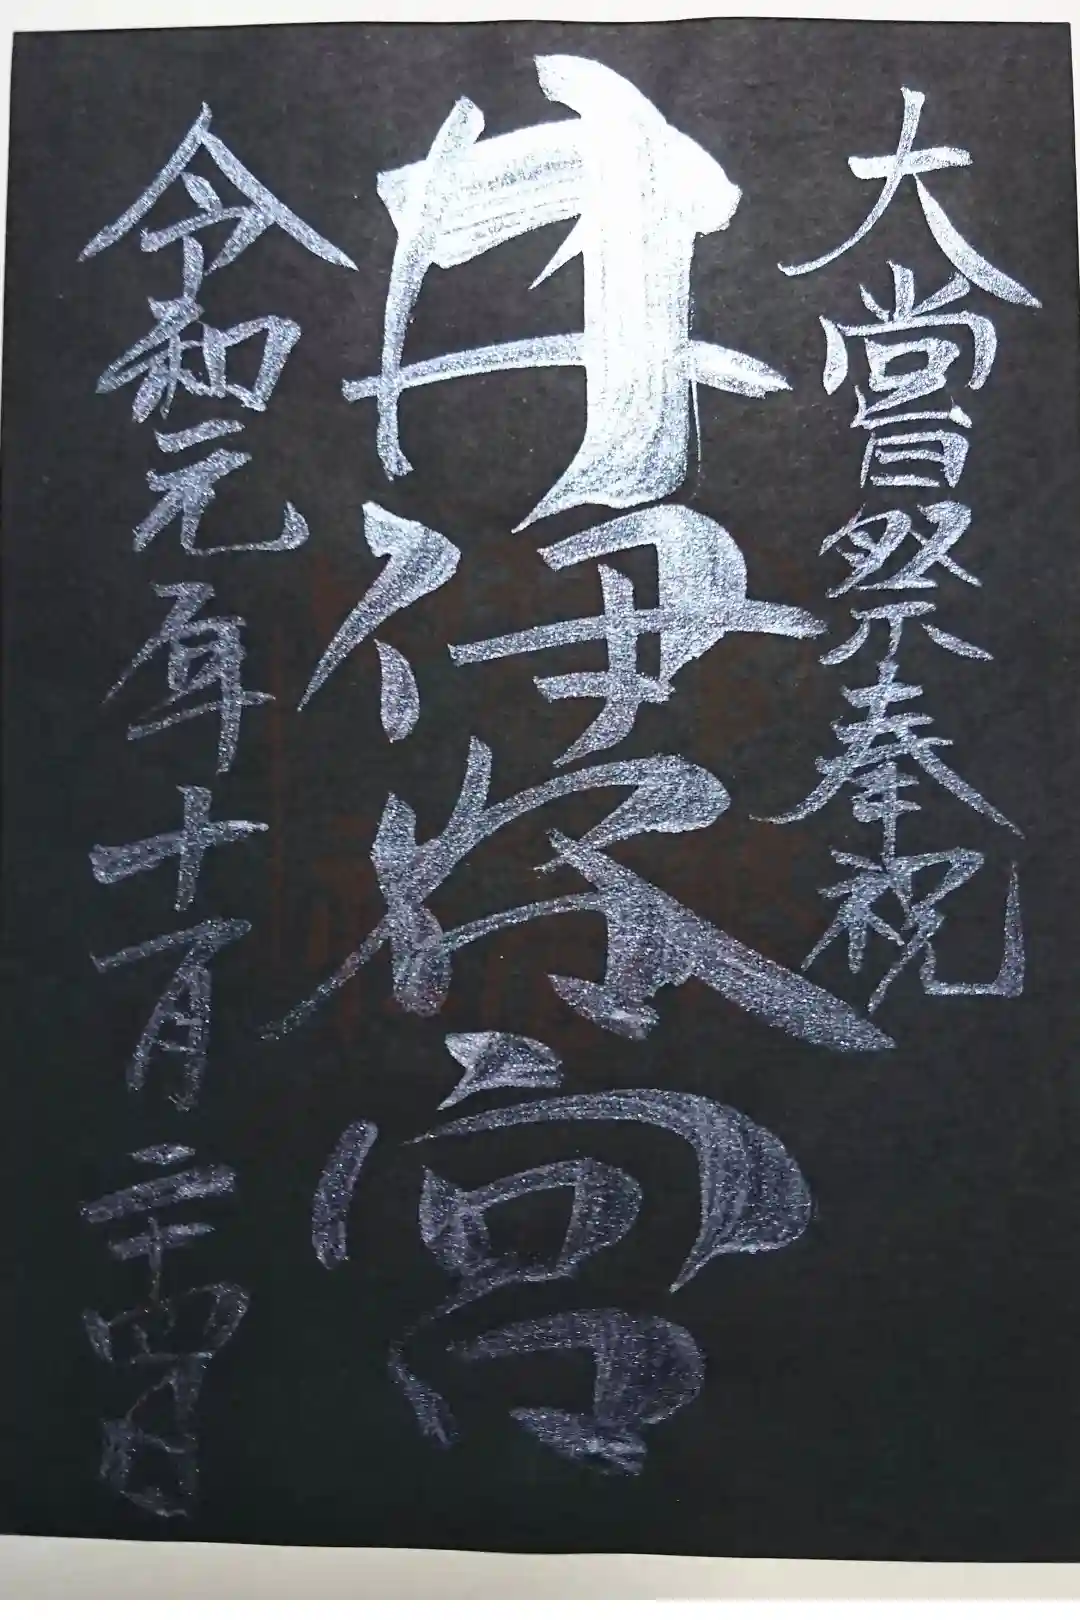 大嘗祭奉祝
伊 宮
令和元年十一月二十四日